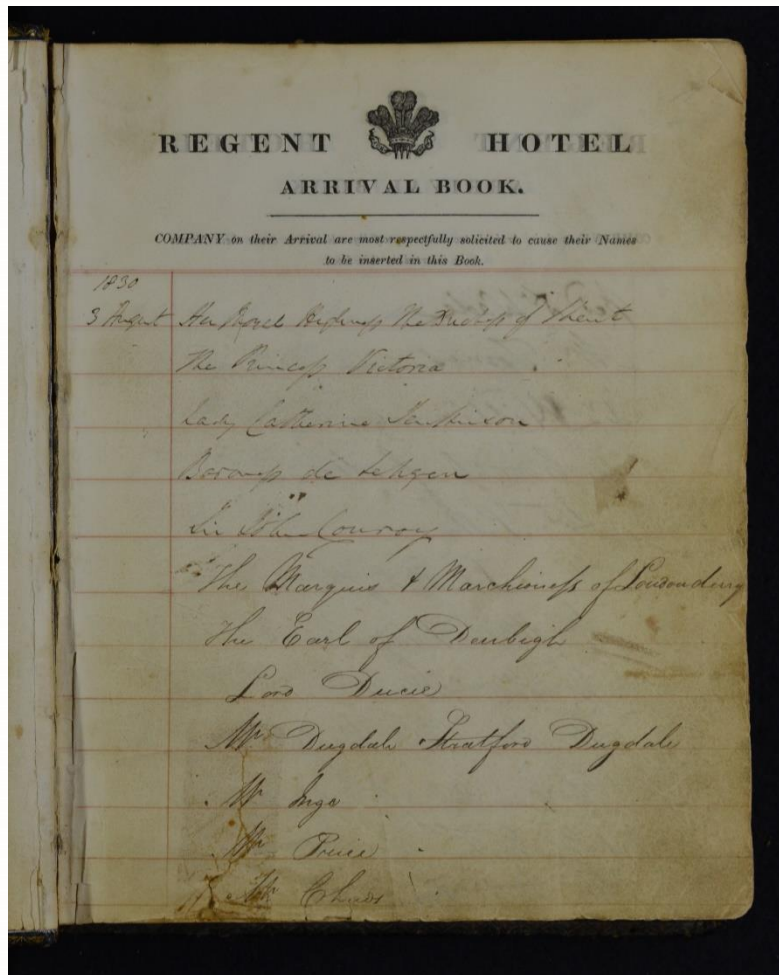 REGENT HOTEL
ARRIVAL BOOK.
COMPANY on their Arrival are most respectfully solicited to cause their Names
to be inserted in this Book.
1830
3 August Her Royal Highness The Duchess of Kent
The Princess Victoria
Lady Catherine Jenkinson
Baroness de Lehzen
Sir John Conroy
The Marquis & Marchioness of Londonderry
The Earl of Denbigh
Lord Ducie
Mr Dugdale Stratford Dugdale
Mr Inge
Mr Price
Mr